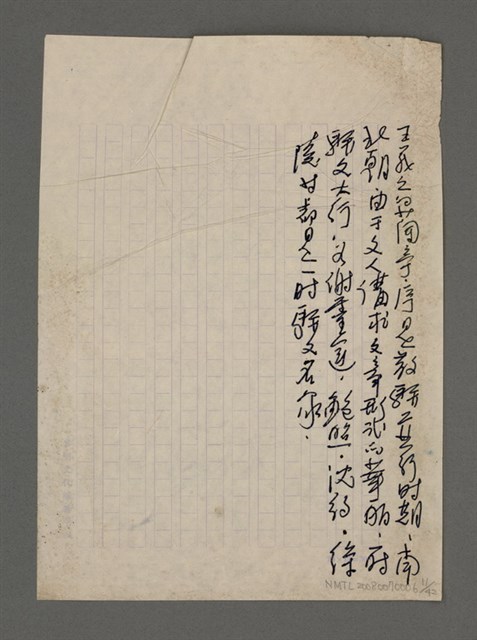 王羲之蘭亭序是散駢並行时期、南
北朝、由于文人講求文章形式的華丽、所
駢文大行、如謝靈運、鮑照、沈約、徐
陵甘都是一时駢文名家、
NMTL20080070006 11/42